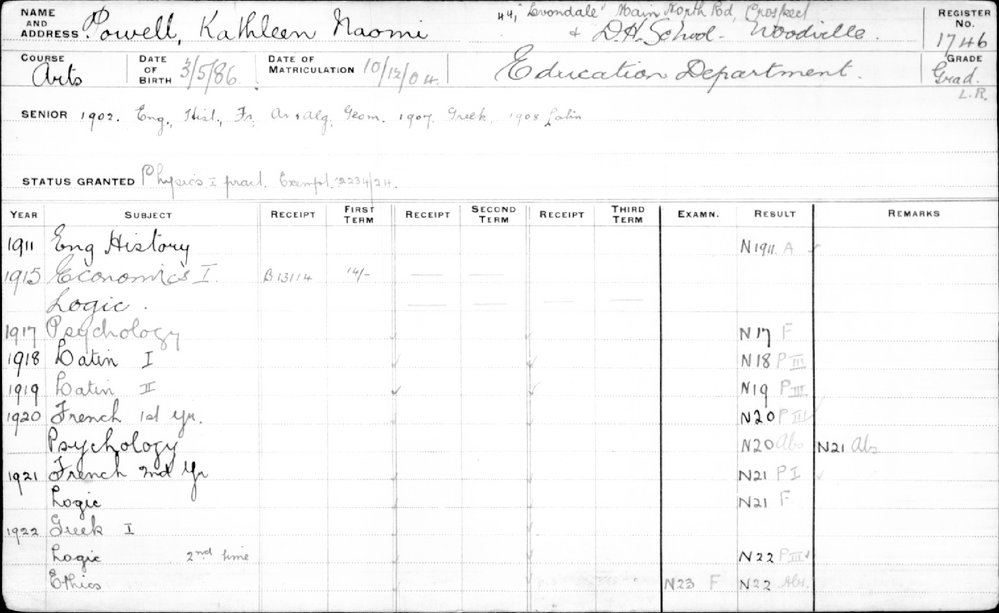 NAME AND ADDRESS Powell, Kathleen Naomi 44, "Levondale" Main North Rd, Prospect & D.H. School - Woodville. REGISTER NO. 1746
COURSE Arts DATE OF BIRTH 3/5/86 DATE OF MATRICULATION 10/12/04 Education Department. GRADE Grad.
L.R.
SENIOR 1902. Eng., Hist., Fr, Ar & Alg, Geom. 1907. Greek, 1908 Latin
STATUS GRANTED Physics I pract. Exempt. 2234/24.
YEAR SUBJECT RECEIPT FIRST TERM RECEIPT SECOND TERM RECEIPT THIRD TERM EXAMN. RESULT REMARKS
1911 Eng History N1911 A
1915 Economics I. B13114 14/-
Logic.
1917 Psychology N17 F
1918 Latin I N18 P III
1919 Latin II N19 P III
1920 French 1st Yr. N20 P III
Psychology N20 Abs N21 Abs
1921 French 2nd Yr N21 P I
Logic N21 F
1922 Greek I
Logic 2nd time N22 P III
Ethics N23 F N22 Abs.